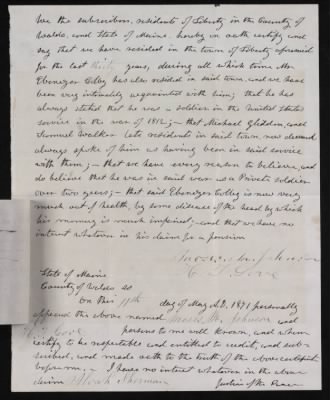 We the subscribers, residents of Liberty in the County of
Waldo, and State of Maine, hereby on oath certify and
say that we have resided in the town of Liberty aforesaid
for the last thirty years, during all which time Mr.
Ebenezer Colby has also resided in said town, and we have
been very intimately acquainted with him; that he has
always stated that he was a soldier in the United States
service in the war of 1812;- that Michael Glidden, and
Samuel Walker late residents in said town, now deceased
always spoke of him as having been in said service
with them;- that we have every reason to believe, and
do believe that he was in said war as a Private soldier
over two years;- that said Ebenezer Colby is now very
much out of health, by some disease of the head by which
his memory is much impaired;- and that we have no
interest whatever in his claim for a pension
State of Maine
County of Waldo ss
On this 11th day of May A.D. 1871 personally
appeared the above named Johnson and
persons to me well known, and whom
certify to be respectable and entitled to credit, and sub-
scribed, and made oath to the truth of the above
before me,- I have no interest whatever in the above
claim Sherman Justice of the Peace